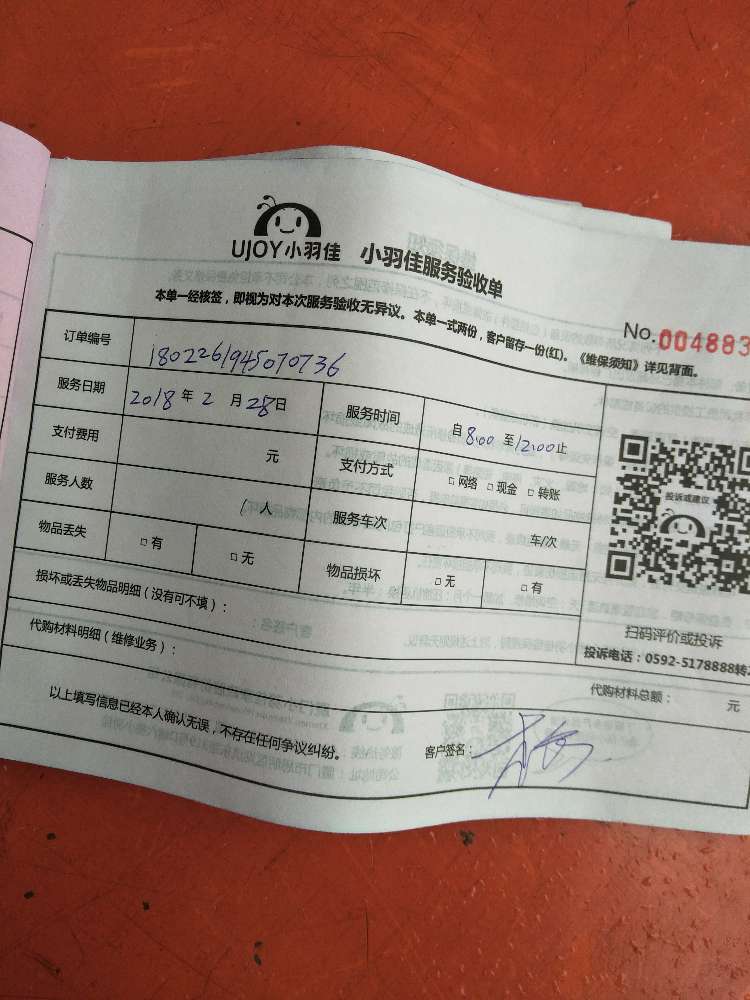 UJOY小羽佳 小羽佳服务验收单
本单一经核签，即视为对本次服务验收无异议。本单一式两份，客户留存一份(红)。《维保须知》详见背面。
No.004883
订单编号 1802261945070736
服务日期 2018年2月28日 服务时间 自8:00至12:00止
支付费用 元 支付方式 □网络 □现金 □转账
服务人数 /人 服务车次 车/次
物品丢失 □有 □无 物品损坏 □无 □有
投诉或建议
扫码评价或投诉
投诉电话：0592-5178888转
损坏或丢失物品明细（没有可不填）：
代购材料明细（维修业务）：
代购材料总额： 元
以上填写信息已经本人确认无误，不存在任何争议纠纷。 客户签名：